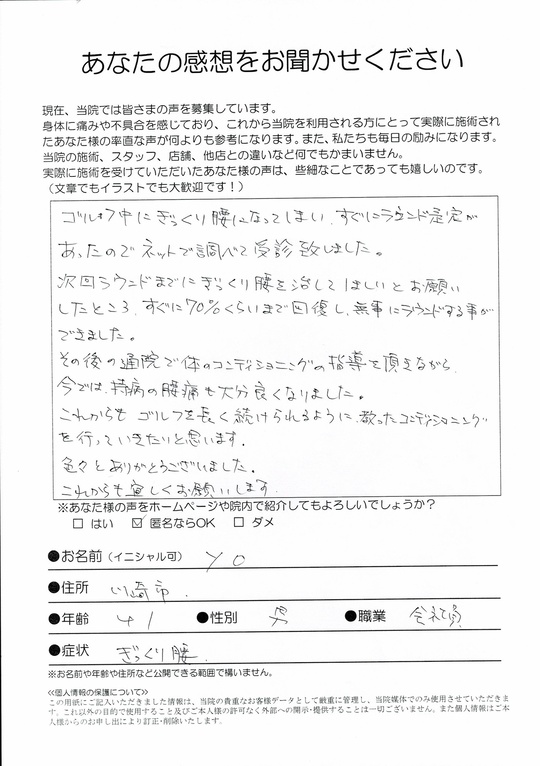 あなたの感想をお聞かせください
現在、当院では皆さまの声を募集しています。
身体に痛みや不具合を感じており、これから当院を利用される方にとって実際に施術され
たあなた様の率直な声が何よりも参考になります。また、私たちも毎日の励みになります。
当院の施術、スタッフ、店舗、他店との違いなど何でもかまいません。
実際に施術を受けていただいたあなた様の声は、些細なことであっても嬉しいのです。
（文章でもイラストでも大歓迎です！）
ゴルフ中にぎっくり腰になってしまい、すぐにラウンド予定が
あったのでネットで調べて受診致しました。
次回ラウンドまでにぎっくり腰を治してほしいとお願い
したところ、すぐに70%くらいまで回復し、無事にラウンドする事が
できました。
その後の通院で体のコンディショニングの指導を頂きながら、
今では、持病の腰痛も大分良くなりました。
これからも ゴルフを長く続けられるように、教ったコンディショニング
を行っていきたいと思います。
色々とありがとうございました。
これからも宜しくお願いします。
※あなた様の声をホームページや院内で紹介してもよろしいでしょうか？
□ はい ☑ 匿名ならOK □ ダメ
●お名前（イニシャル可） YO
●住所 川崎市.
●年齢 41 ●性別 男 ●職業 会社員
●症状 ぎっくり腰
※お名前や年齢や住所など公開できる範囲で構いません。
≪個人情報の保護について≫
この用紙にご記入いただきました情報は、当院の貴重なお客様データとして厳重に管理し、当院媒体でのみ使用させていただきま
す。これ以外の目的で使用すること及びご本人様の許可なく外部への開示・提供することは一切ございません。また個人情報はご本
人様からのお申し出により訂正・削除いたします。